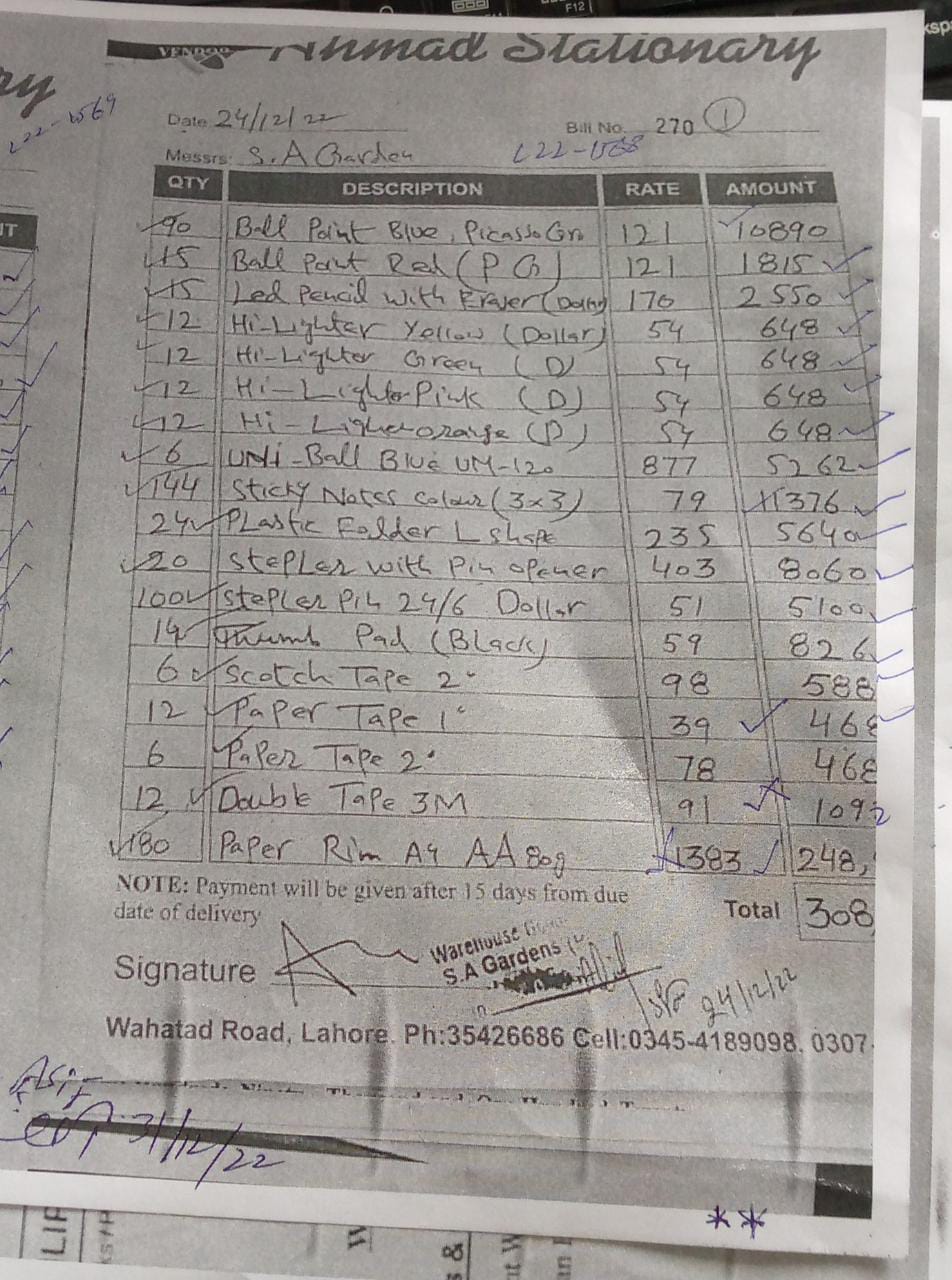 VENDOR Ahmad Stationary
L22-1569
Date 24/12/22 Bill No. 270 1
Messrs: S.A Garden L22-1568
QTY DESCRIPTION RATE AMOUNT
90 Ball Point Blue, Picasso Grn 121 10890
15 Ball Point Red (P G) 121 1815
15 Led Pencil with Eraser (Dollar) 170 2550
12 Hi-Lighter Yellow (Dollar) 54 648
12 Hi-Lighter Green (D) 54 648
12 Hi-Lighter Pink (D) 54 648
12 Hi-Ligher orange (D) 54 648
6 UNi-Ball Blue UM-120 877 5262
144 Sticky Notes Colour (3x3) 79 11376
24 PLastic Folder L shape 235 5640
20 StepLer with Pin opener 403 8060
100 StepLer Pin 24/6 Dollar 51 5100
14 Thumb Pad (Black) 59 826
6 Scotch Tape 2" 98 588
12 Paper Tape 1" 39 468
6 Paper Tape 2" 78 468
12 Double Tape 3M 91 1092
180 Paper Rim A4 AA 80g 1383 248,
NOTE: Payment will be given after 15 days from due
date of delivery
Total 308
Signature
Warehouse
S.A Gardens
24/12/22
Wahatad Road, Lahore. Ph:35426686 Cell:0345-4189098. 0307
Asif
31/12/22
**